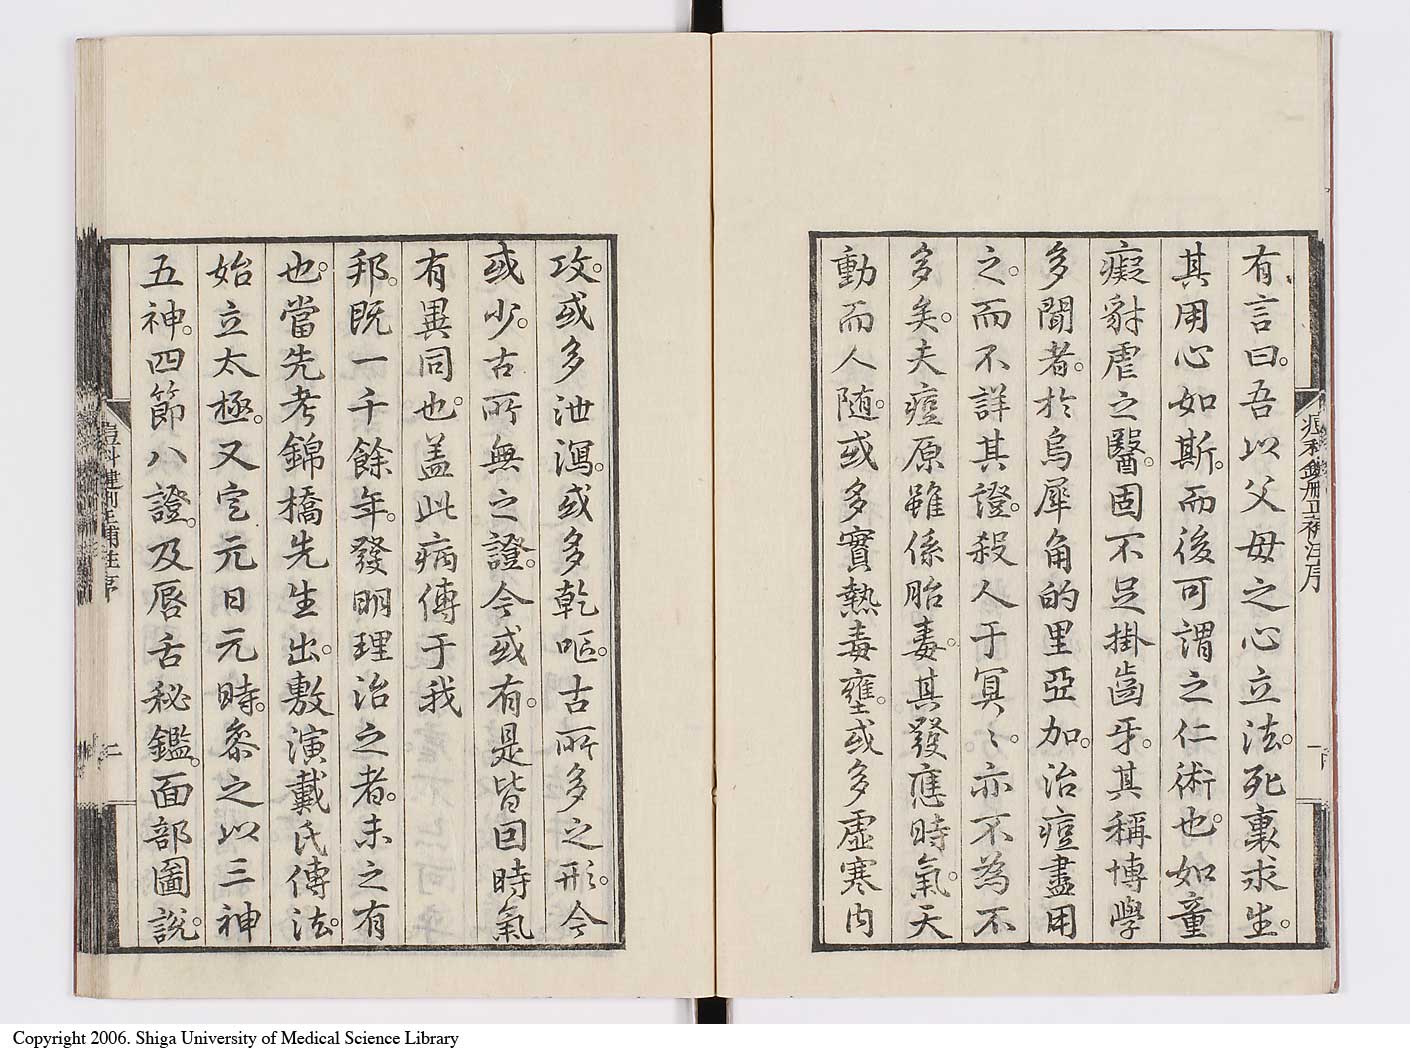 有言曰。吾以父母之心立法。死裏求生。
其用心如斯。而後可謂之仁術也。如童
癡豺虐之醫。固不足掛齒牙。其稱博學
多聞者。於烏犀角的里亞加。治痘盡用
之。而不詳其證。殺人于冥〻。亦不為不
多矣。夫痘原雖係胎毒。其發應時氣。天
動而人随。或多實熱毒壅。或多虛寒内
攻。或多泄瀉。或多乾嘔。古所多之形。今
或少。古所無之證。今或有。是皆因時氣
有異同也。盖此病傳于我
邦。既一千餘年。發明理治之者。未之有
也。當先考錦橋先生出。敷演戴氏傳法。
始立太極。又定元日元時。叅之以三神
五神。四節八證。及唇舌秘鑑。面部圖說。
一
二
Copyright 2006. Shiga University of Medical Science Library